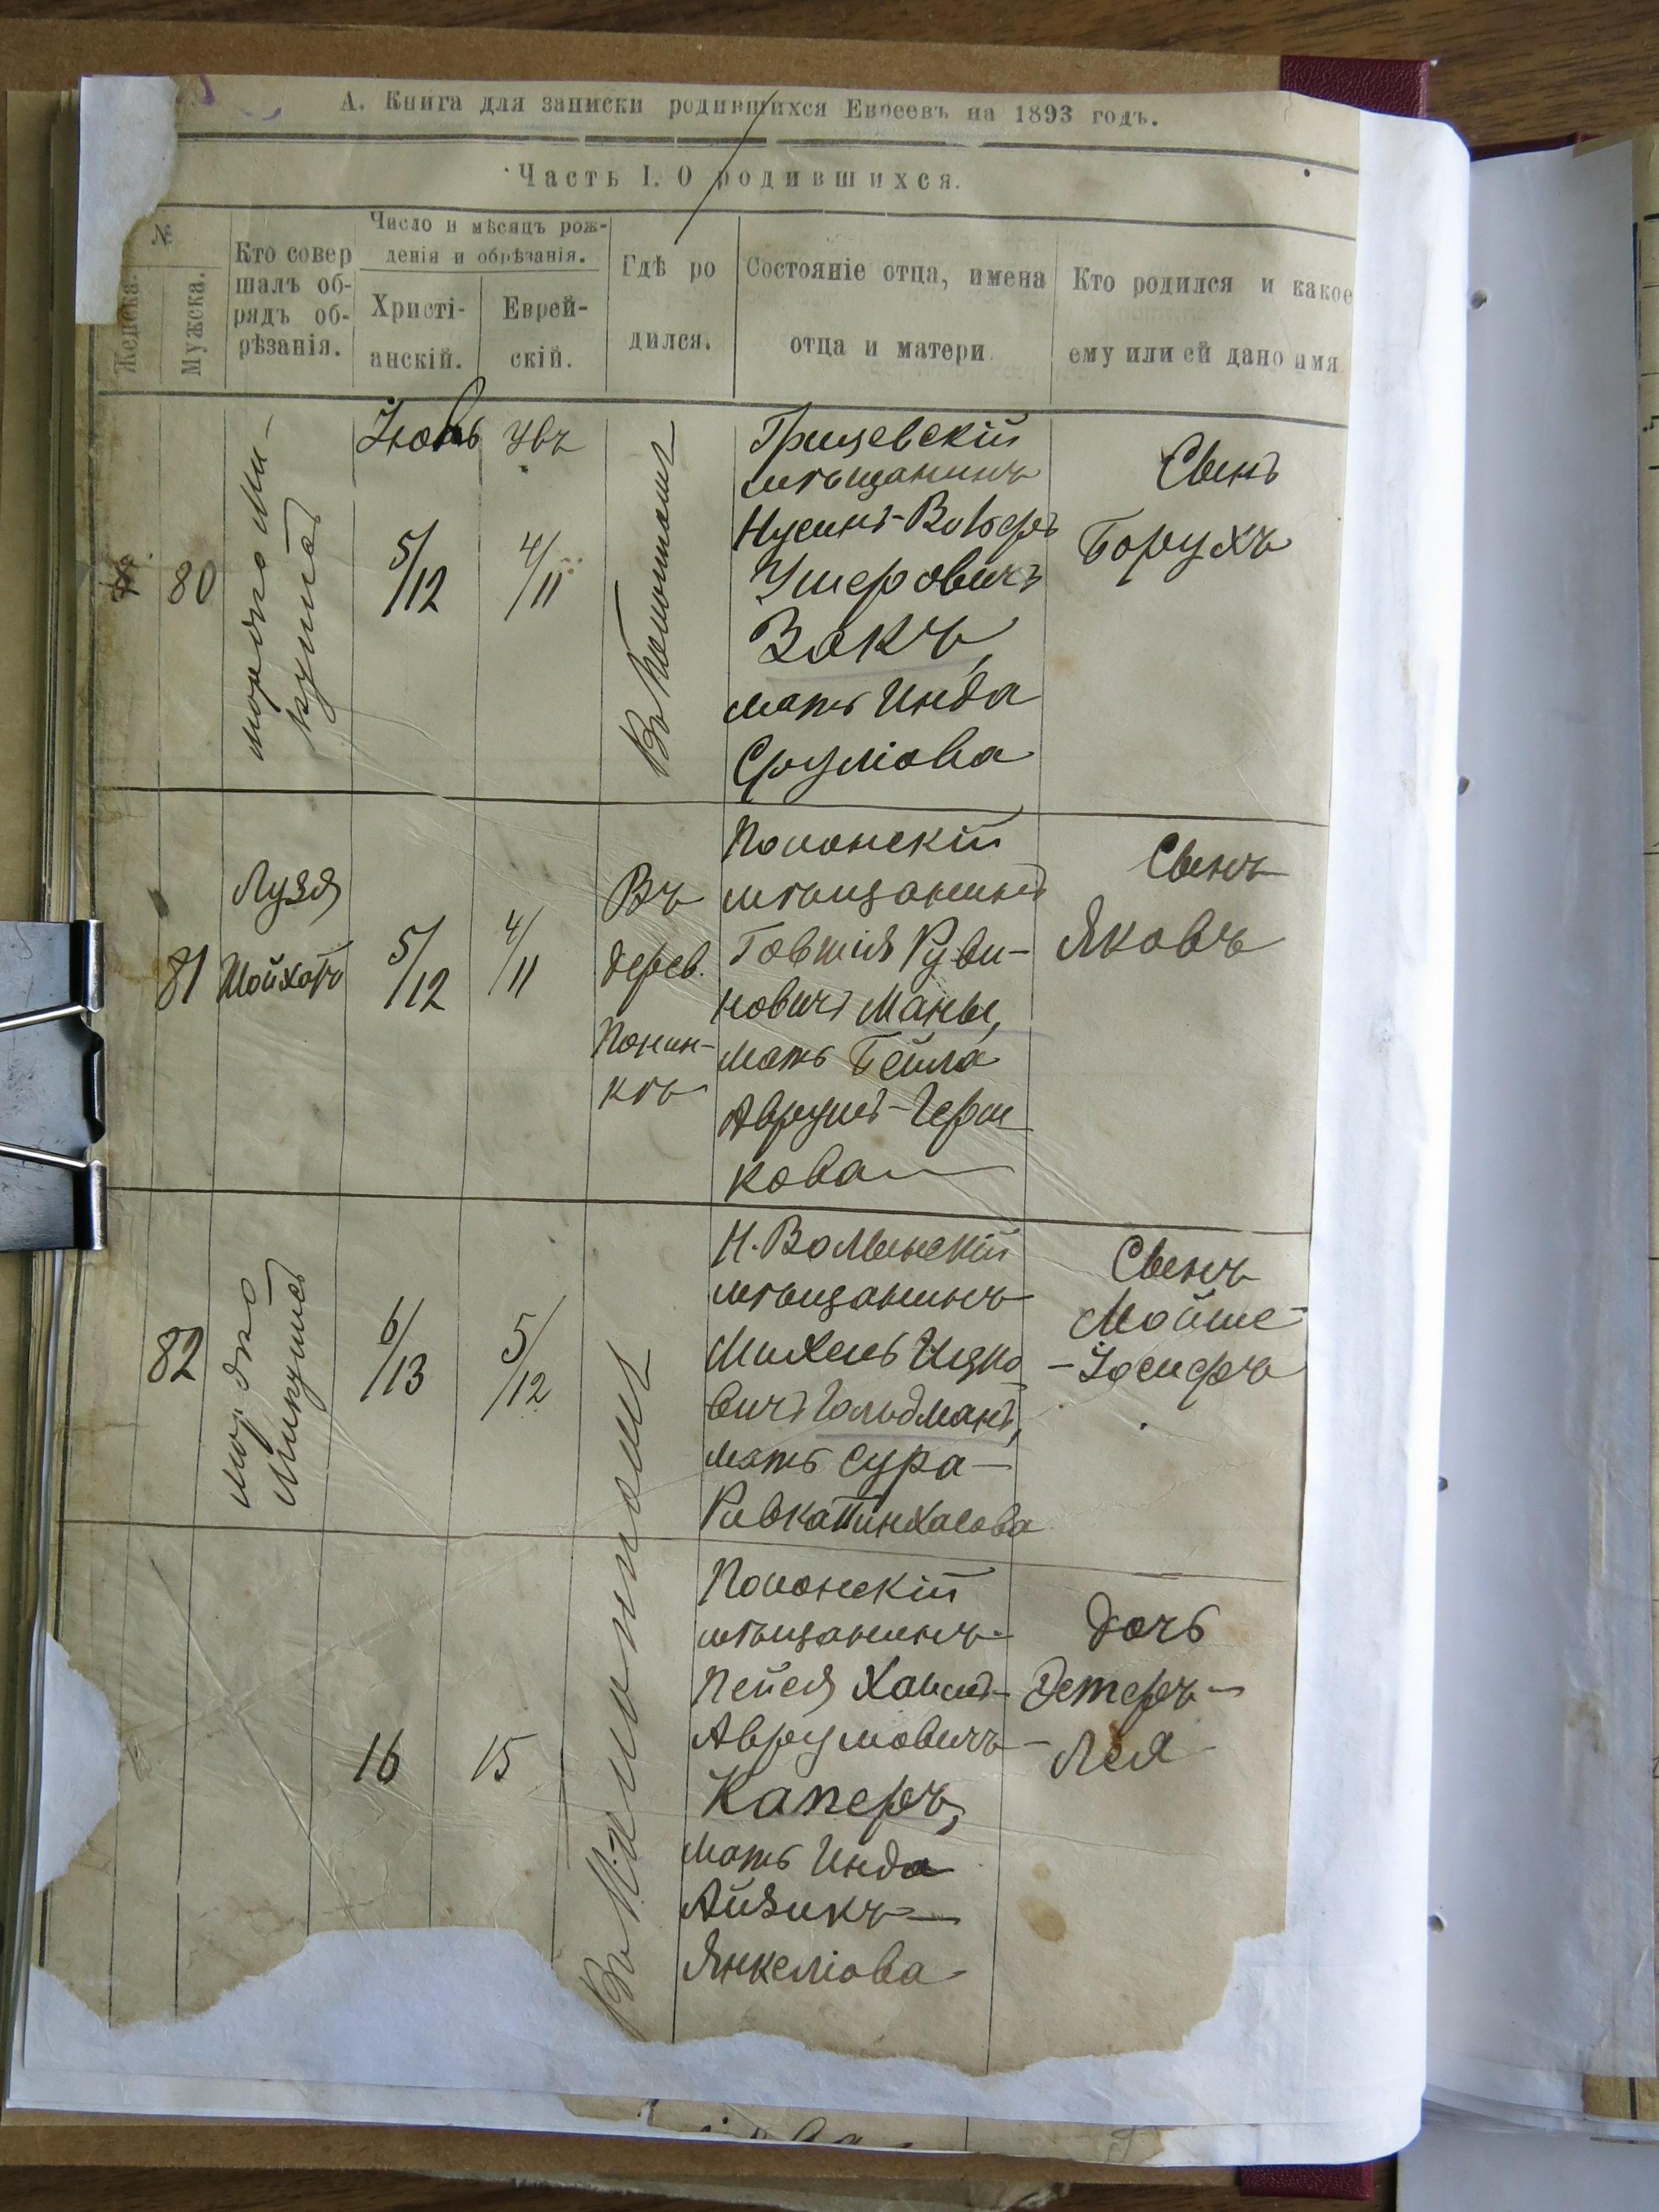 А. Книга для записки родившихся Евреевъ на 1893 годъ.
Часть I. О родившихся.
№
Женска.
Мужска.
Кто совер
шалъ об-
рядъ об-
рѣзанія.
Число и мѣсяцъ рож-
денія и обрѣзанія.
Христі-
анскій.
Еврей-
скій.
Гдѣ ро
дился.
Состояніе отца, имена
отца и матери.
Кто родился и какое
ему или ей дано имя
80
мордко Ми-
кушись
5/12
4/11
Въ Полонномъ
Грицевскій
мѣщанинъ
Нусинъ-Вольфъ
Ушеровичъ
Закъ,
мать Инда
Срулiова
Сынъ
Борухъ
81
Лузя
Шойхатъ
5/12
4/11
Въ
дерев.
Понин-
кѣ
Полонскій
мѣщанинъ
Говшія Руви-
новичъ Маны,
мать Бейла
Аврумъ-Герш
кова
Сынъ
Яковъ
82
мордко
Микушись
6/13
5/12
Н. Волынскій
мѣщанинъ
Михель Ицко
вичъ Гольдманъ,
мать Сура-
Ривка Пинхасова
Сынъ
Мойше-
-Іосифъ
16
15
Въ М. Полонномъ
Полонскій
мѣщанинъ
Пейся Хаимъ-
Аврумовичъ
Каперъ,
мать Инда
Айзикъ-
Янкелiова
дочь
Эстеръ-
-Лея